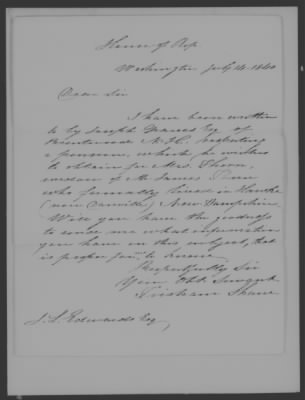 House of Rep
Washington July 14. 1840
Dear Sir
I have been written
to by Joseph Graves Esq of
Brentwood N.H. respecting
a pension, which he wishes
to obtain for Mrs.
widow of Mr James
who formerly lived in Hawke
(now Danville) New Hampshire
Will you have the goodness
to send me what information
you have on this subject, that
is proper for me to know
Respectfully Sir
Your Obt Servant
Tristram Shaw
J. L. Edwards Esq